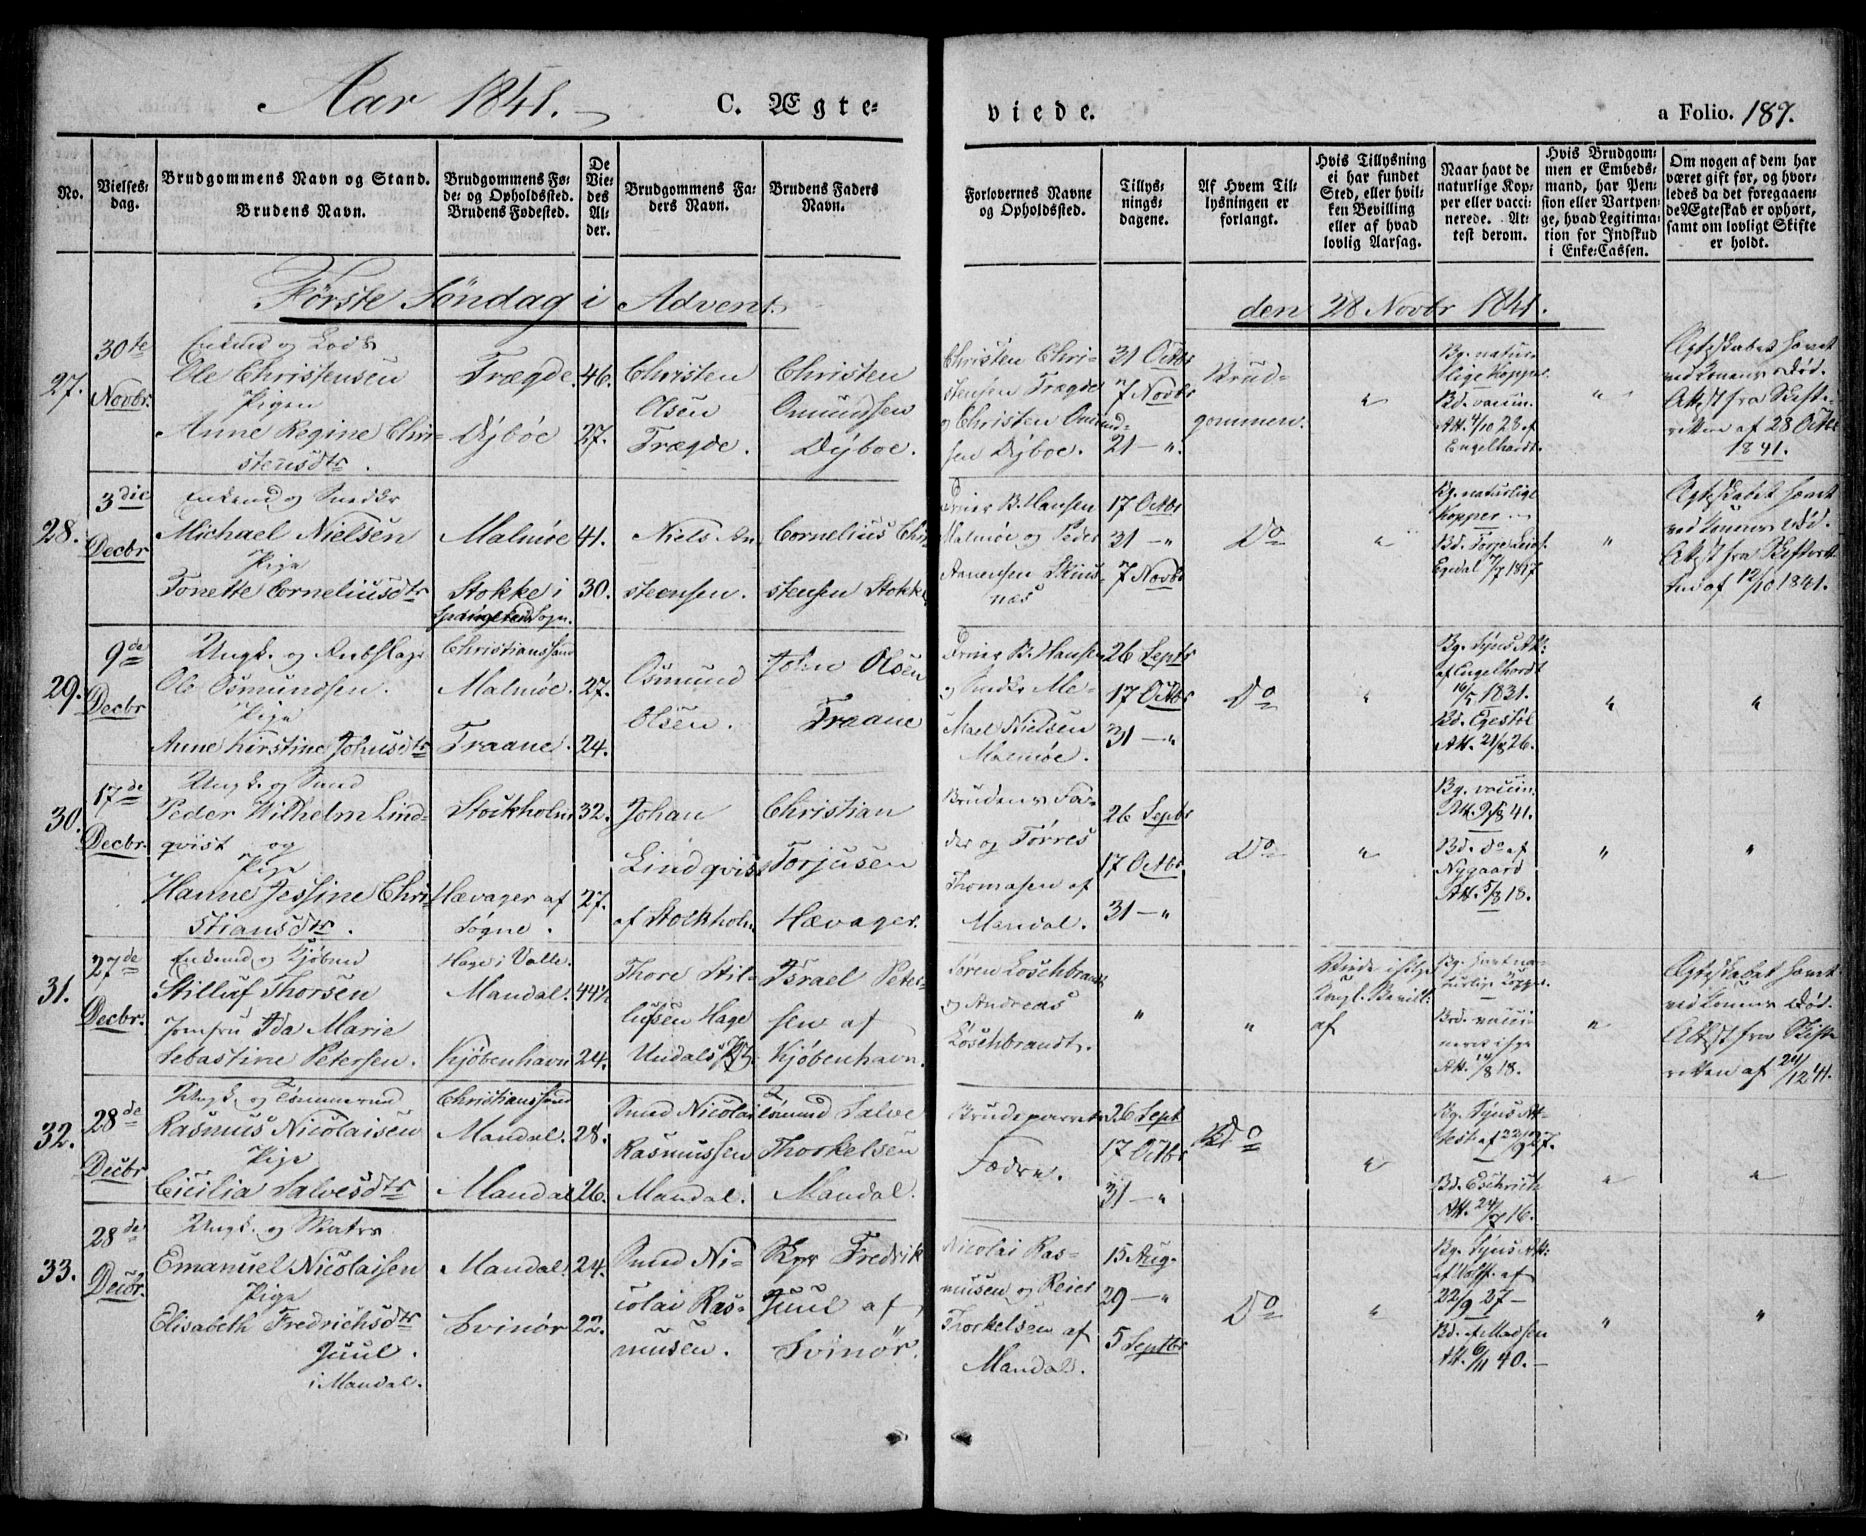 Aar 1841.
C. Ægte-
viede.
a Folio. 187.
No.
Vielses-
dag.
Brudgommens Navn og Stand.
Brudens Navn.
Brudgommens Fø-
de- og Opholdssted.
Brudens Fødested.
De
Vie-
des
Al-
der.
Brudgommens Fa-
ders Navn.
Brudens Faders
Navn.
Forlovernes Navne
og Opholdssted.
Tillys-
nings-
dagene.
Af Hvem Til-
lysningen er
forlangt.
Hvis Tillysning
ei har fundet
Sted, eller hvil-
ken Bevilling
eller af hvad
lovlig Aarsag.
Naar havt de
naturlige Kop-
per eller vacci-
nerede. At-
test derom.
Hvis Brudgom-
men er Embeds-
mand, har Pen-
sion eller Vartpen-
ge, hvad Legitima-
tion for Indskud
i Enke-Cassen.
Om nogen af dem har
været gift før, og hvor-
ledes da det foregaaen-
de Ægteskab er ophørt,
samt om lovligt Skifte
er holdt.
Første Søndag i Advent.
den 28 Novbr 1841.
27.
30te
Novbr.
Enkemd og Lods
Ole Christensen
Pigen
Anne Regine Chri-
stensdtr.
Trægde.
Dÿböe
46.
27.
Christen
Olsen
Trægde.
Christen
Omundsen
Dÿboe.
Christen Chri-
stensen Trægde
og Christen Omund-
sen Dÿboe.
31 Octbr
7 Novbr
21 — "
Brud-
gommen.
"
Bg. natur-
lige Kopper.
Bd. vaccin.
Att. 4/10 28 af
Engelhardt.
"
Ægteskabet hævet
ved Konens Død.
Attest fra Skifte-
retten af 28 Octbr
1841.
28.
3die
Decbr
Enkemd og Snedkr
Michael Nielsen
Pige
Tonette Corneliusdtr
Malmøe
Stokke i
Sogn.
41.
30.
Niels An-
steensen.
Cornelius Chri-
stensen Stokke
B. Hansen
Malmøe og Peder
Aanensen Skins-
næs
17 Octbr
31 — "
7 Novbr
Do
"
Bg. naturlige
Kopper
Bd.
Egedal 7/7 1817.
"
Ægteskabet hævet
ved Konens Død.
Attest fra Skifteret-
ten af 12/10 1841.
29.
9de
Decbr
Ungk. og Rebslager
Ole Osmundsen.
Pige
Anne Kirstine Johnsdtr
Christianssand
Malmøe.
Traane.
27.
24.
Osmund
Olsen.
John Olsen
Traane
B. Hansen
og Snedkr Mi-
chael Nielsen
Malmøe.
26 Septr
17 Octbr
31 — "
Do
"
Bg. Syns Att.
af Engelhardt
16/5 1831.
Bd. Egestöl
Att. 21/8 26.
"
"
30.
17de
Decbr.
Ungk. og Smed
Peder Wilhelm Lind-
qvist og
Pige
Hanne Jessine Chri-
stiansdtr.
Stockholm
Hævager af
Søgne.
32.
27.
Johan
Lindqvist
af Stockholm
Christian
Torjusen
Hævager.
Brudens Fa-
der og Törres
Thomasen af
Mandal.
26 Septbr
17 Octbr.
31 — "
Do
"
Bg. vaccin.
Att. 9/8 41.
Bd. do af
Nygaard
Att. 5/8 18.
"
"
31.
27de
Decbr.
Enkemd og Kjøbmd
Stilluf Thorsen
Jomfru Ida Marie
Sebastine Petersen.
Hage i Valle.
Mandal.
Kjøbenhavn
44½
24.
Thore Stil-
lufsen Hage
Undals
Israel Peter-
sen af
Kjøbenhavn.
Sören Loschbrandt
og Andreas
Löschbrandt.
"
"
Viede ifölge
Kongl. Bevill.
af
Bg. havt na-
turlige Kopper.
Brd. vacci-
neret ifge
Att. 14/8 18.
"
Ægteskabet hævet
ved Konens Död.
Attest fra Skifte-
retten af 24/12 41.
32.
28de
Decbr
Ungk. og Tømmermd
Rasmus Nicolaisen
Pige
Cicilia Salvesdtr
Christianssand
Mandal.
Mandal
28.
26.
Smed Nicolai
Rasmussen
Mandal.
Tömmd Salve
Thorkelsen
Mandal.
Brudeparrets
Fædre.
26 Sept
17 Octbr
31 — "
Do
"
Bg. Syns At-
test af 22/9 27.
Bd. Eschricht
Att. 24/7 16.
"
"
33.
28de
Decbr.
Ungk. og Matrs
Emanuel Nicolaisen
Pige
Elisabeth Fredrichsdtr
Juul.
i Mandal.
Mandal.
Svinör
24.
22.
Smed Ni-
colai Ras-
musen.
Fredrik
Juul af
Svinör.
Nicolai Ras-
musen og Reier
Thorkelsen af
Mandal.
15 Aug.
29 — "
5 Septbr
Do
"
Bg. Syns Att.
af Wulff. af
22/9 27 —
Bd. af Madsen
Att. 6/11 40. —
"
"